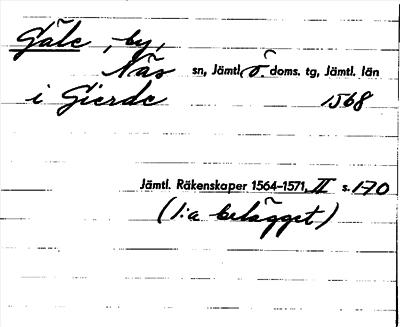 Gäle, by,
Näs sn, Jämtl. Ö. doms. tg, Jämtl. län
i Gierde 1568
Jämtl. Räkenskaper 1564–1571, II s. 170
(1:a belägget)